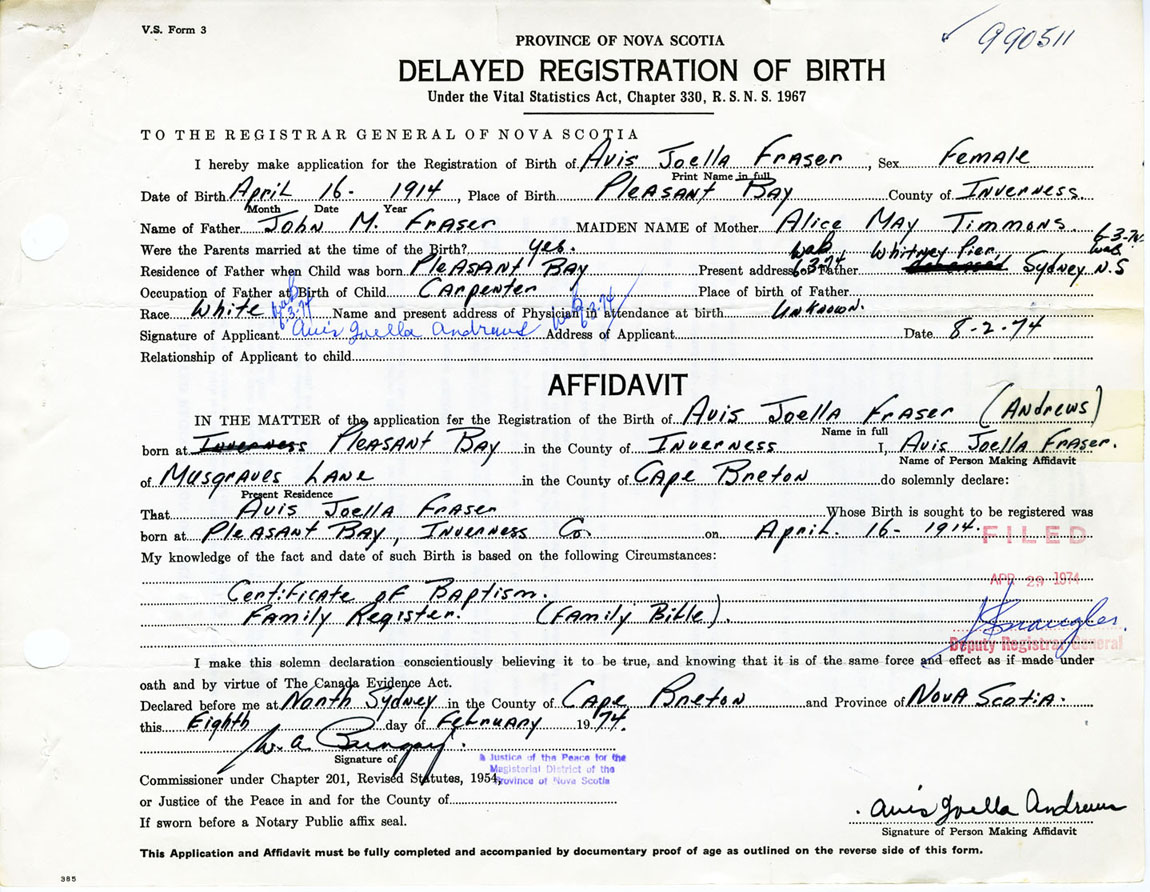 V.S. Form 3
990511
PROVINCE OF NOVA SCOTIA
DELAYED REGISTRATION OF BIRTH
Under the Vital Statistics Act, Chapter 330, R.S.N.S. 1967
TO THE REGISTRAR GENERAL OF NOVA SCOTIA
I hereby make application for the Registration of Birth of Avis Joella Fraser, Sex Female
Print Name in full
Date of Birth April 16- 1914, Place of Birth Pleasant Bay County of Inverness.
Month Date Year
Name of Father John M. Fraser MAIDEN NAME of Mother Alice May Timmons.
Were the Parents married at the time of the Birth? yes. wab Whitney Pier, 6-3-74 wab
Residence of Father when Child was born Pleasant Bay Present address of Father 6.3.74 deceased Sydney N.S
Occupation of Father at Birth of Child Carpenter Place of birth of Father
Race White wab 6.3.74 Name and present address of Physician in attendance at birth wab 6.3.74 Unknown.
Signature of Applicant Avis Joella Andrews Address of Applicant Date 8-2-74
Relationship of Applicant to child
AFFIDAVIT
IN THE MATTER of the application for the Registration of the Birth of Avis Joella Fraser (Andrews)
Name in full
born at Inverness Pleasant Bay in the County of Inverness I, Avis Joella Fraser.
Name of Person Making Affidavit
of Musgraves Lane in the County of Cape Breton do solemnly declare:
Present Residence
That Avis Joella Fraser Whose Birth is sought to be registered was
born at Pleasant Bay, Inverness Co. on April. 16- 1914.
FILED
My knowledge of the fact and date of such Birth is based on the following Circumstances:
APR 29 1974
Certificate of Baptism.
Family Register. (Family Bible).
Deputy Registrar General
I make this solemn declaration conscientiously believing it to be true, and knowing that it is of the same force and effect as if made under
oath and by virtue of The Canada Evidence Act.
Declared before me at North Sydney in the County of Cape Breton and Province of Nova Scotia.
this Eighth day of February 1974.
W. A.
Signature of
A Justice of the Peace for the
Magisterial District of the
Province of Nova Scotia
Commissioner under Chapter 201, Revised Statutes, 1954,
or Justice of the Peace in and for the County of
If sworn before a Notary Public affix seal.
Avis Joella Andrews
Signature of Person Making Affidavit
This Application and Affidavit must be fully completed and accompanied by documentary proof of age as outlined on the reverse side of this form.
385